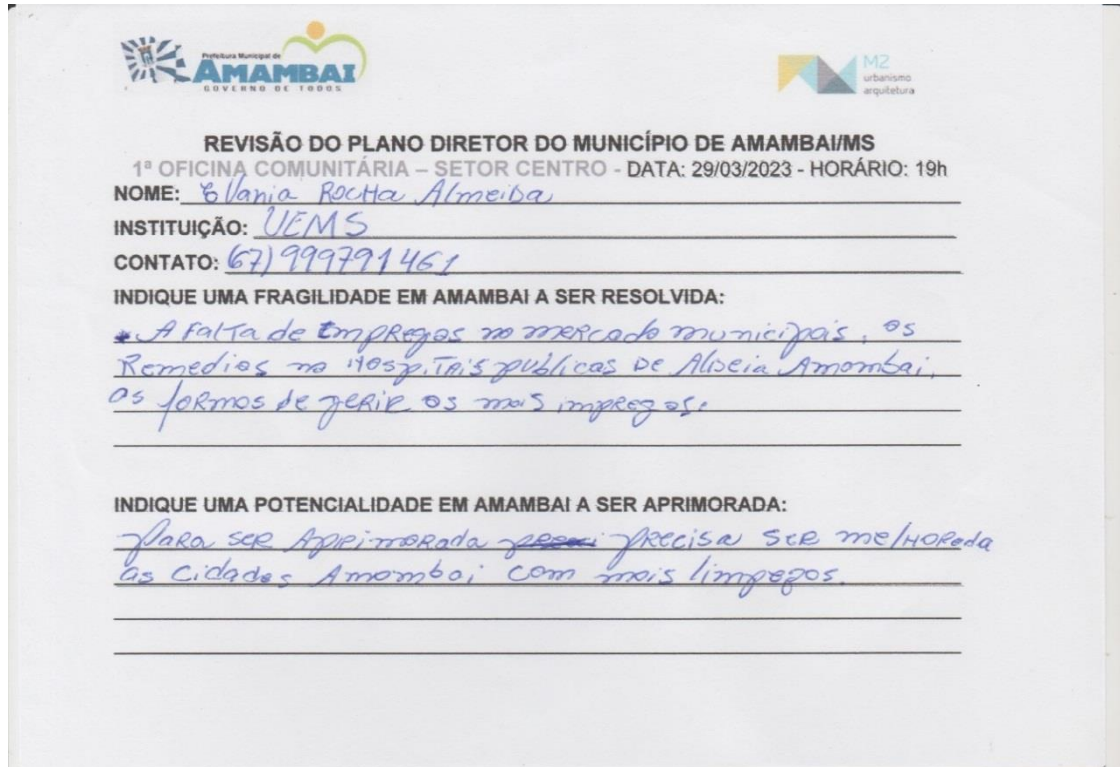 Prefeitura Municipal de
AMAMBAI
GOVERNO DE TODOS
M2
urbanismo
arquitetura
REVISÃO DO PLANO DIRETOR DO MUNICÍPIO DE AMAMBAI/MS
1ª OFICINA COMUNITÁRIA – SETOR CENTRO - DATA: 29/03/2023 - HORÁRIO: 19h
NOME: Elvania Rocha Almeida
INSTITUIÇÃO: UEMS
CONTATO: 67) 999791461
INDIQUE UMA FRAGILIDADE EM AMAMBAI A SER RESOLVIDA:
A Falta de Empregos no mercado municipais, os
Remedios no Hospitais públicas De Aldeia Amambai,
as formas de gerir os mais impregos.
INDIQUE UMA POTENCIALIDADE EM AMAMBAI A SER APRIMORADA:
Para ser Aprimorada precisa ser melhorada
as Cidades Amambai com mais limpezos.